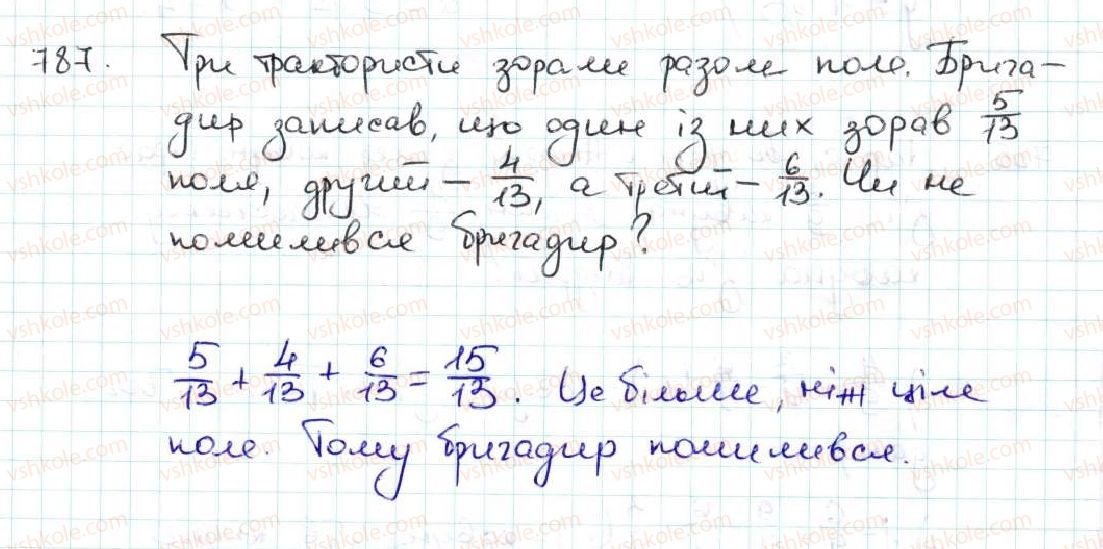 787. Три трактористи зорали разом поле. Брига-
дир записав, що один із них зорав 5/13
поля, другий – 4/13, а третій – 6/13. Чи не
помилився бригадир?
5/13 + 4/13 + 6/13 = 15/13. Це більше, ніж ціле
поле. Тому бригадир помилився.